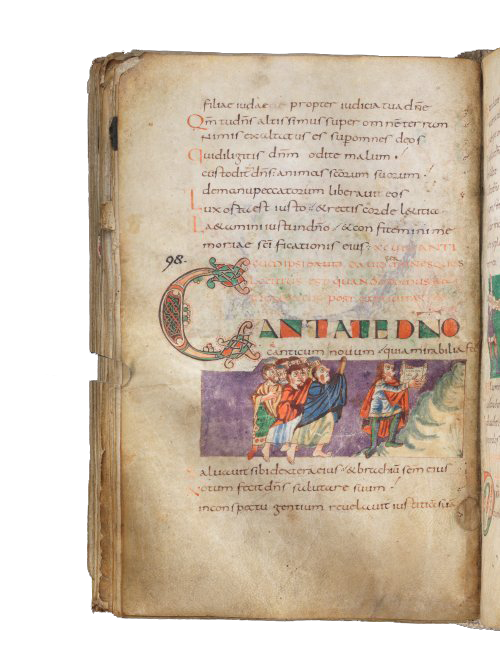 filiae iudae propter iudicia tua dñe
Qm̄ tu dñs altissimus super omnē terram
Nimis exaltatus es sup omnes deos
Qui diligitis dnm̄ odite malum
custodit dn̄s animas scōrum suorum
de manu peccatorum liberavit eos
Lux orta est iusto & rectis corde laetitia
Laetamini iusti in dño & confitemini me
moriae scīficationis eius
98.
CANTATE DNO
canticum novum quia mirabilia fec
Salvavit sibi dextera eius & brachiū scm̄ eius
Notum fecit dn̄s salutare suum
in conspectu gentium revelavit iustitiā suā